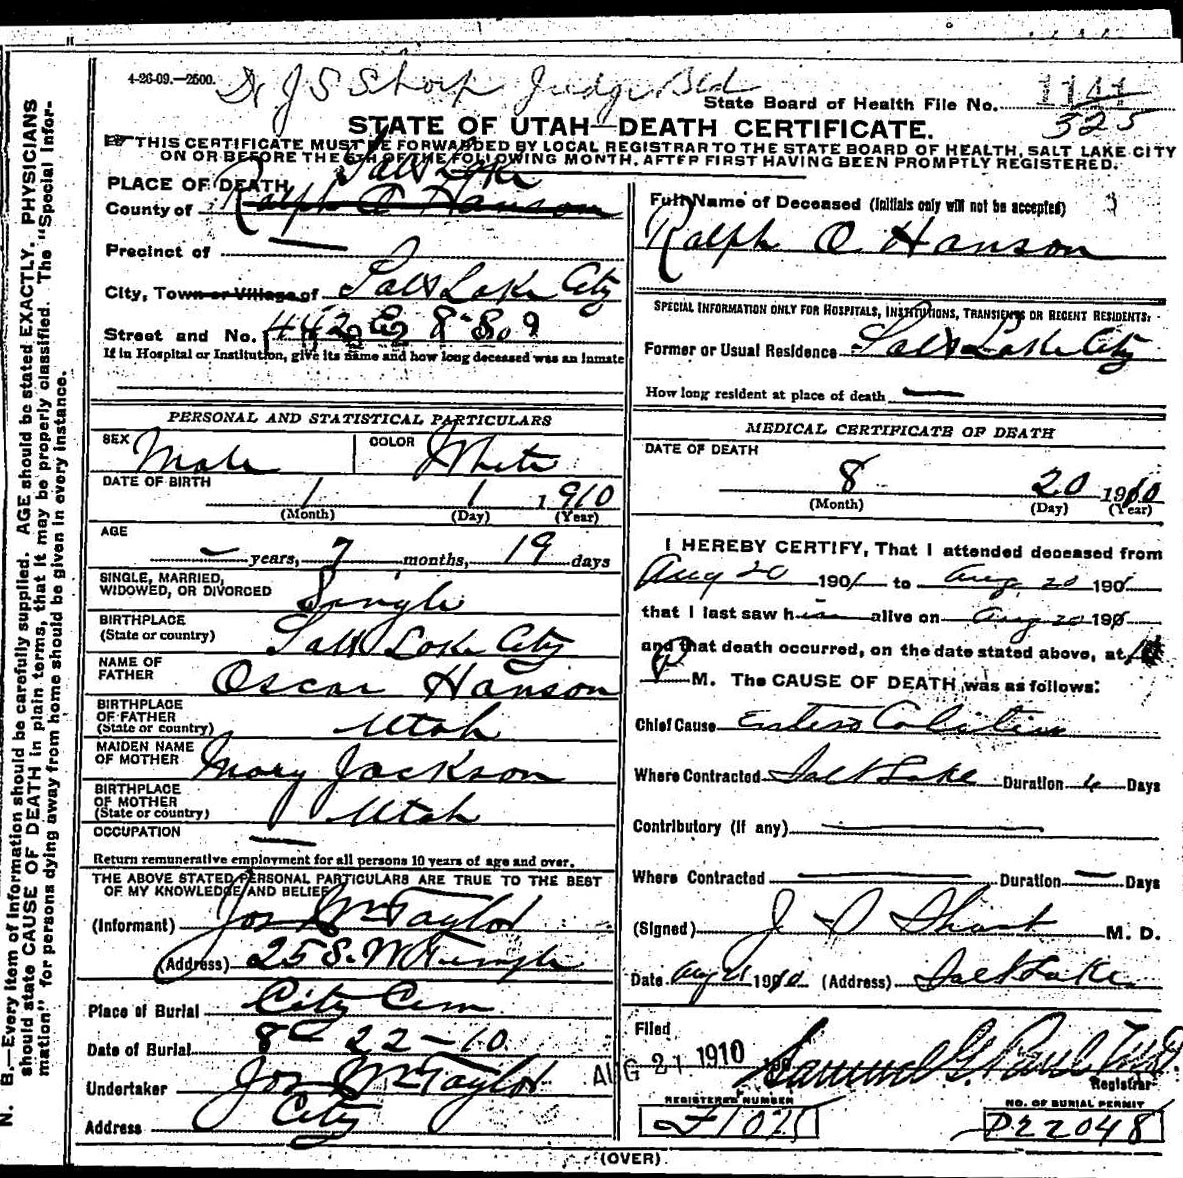 4-26-09.—2500.
Dr J S Sharp Judge Bld
State Board of Health File No.
325
STATE OF UTAH—DEATH CERTIFICATE.
THIS CERTIFICATE MUST BE FORWARDED BY LOCAL REGISTRAR TO THE STATE BOARD OF HEALTH, SALT LAKE CITY
ON OR BEFORE THE 5TH OF THE FOLLOWING MONTH, AFTER FIRST HAVING BEEN PROMPTLY REGISTERED.
PLACE OF DEATH
Salt Lake
County of Ralph O Hanson
Precinct of
City, Town or Village of Salt Lake City
Street and No.
If in Hospital or Institution, give its name and how long deceased was an inmate
Full Name of Deceased (Initials only will not be accepted)
Ralph O Hanson
SPECIAL INFORMATION ONLY FOR HOSPITALS, INSTITUTIONS, TRANSIENTS OR RECENT RESIDENTS:
Former or Usual Residence Salt Lake City
How long resident at place of death —
PERSONAL AND STATISTICAL PARTICULARS
SEX Male COLOR White
DATE OF BIRTH
1 1 1910
(Month) (Day) (Year)
AGE
— years, 7 months, 19 days
SINGLE, MARRIED,
WIDOWED, OR DIVORCED Single
BIRTHPLACE
(State or country) Salt Lake City
NAME OF
FATHER Oscar Hanson
BIRTHPLACE
OF FATHER
(State or country) Utah
MAIDEN NAME
OF MOTHER Mary Jackson
BIRTHPLACE
OF MOTHER
(State or country) Utah
OCCUPATION —
Return remunerative employment for all persons 10 years of age and over.
THE ABOVE STATED PERSONAL PARTICULARS ARE TRUE TO THE BEST
OF MY KNOWLEDGE AND BELIEF
(Informant) Jos Wm Taylor
(Address) 25 S. W Temple
Place of Burial City Cem
Date of Burial 8 — 22 — 10
Undertaker Jos Wm Taylor
Address City
MEDICAL CERTIFICATE OF DEATH
DATE OF DEATH
8 20 1910
(Month) (Day) (Year)
I HEREBY CERTIFY, That I attended deceased from
Aug 20 190 to Aug 20 190
that I last saw him alive on Aug 20 190
and that death occurred, on the date stated above, at
P M. The CAUSE OF DEATH was as follows:
Chief Cause Entero Colitis
Where Contracted Salt Lake Duration 4 Days
Contributory (if any) —
Where Contracted — Duration — Days
(Signed) J S Sharp M. D.
Date Aug 21 1910 (Address) Salt Lake
Filed
AUG 21 1910 190 Samuel G. Paul M.D.
Registrar
REGISTERED NUMBER
F1075
NO. OF BURIAL PERMIT
D22048
(OVER)
N. B.—Every item of information should be carefully supplied. AGE should be stated EXACTLY. PHYSICIANS
should state CAUSE OF DEATH in plain terms, that it may be properly classified. The "Special Infor-
mation" for persons dying away from home should be given in every instance.